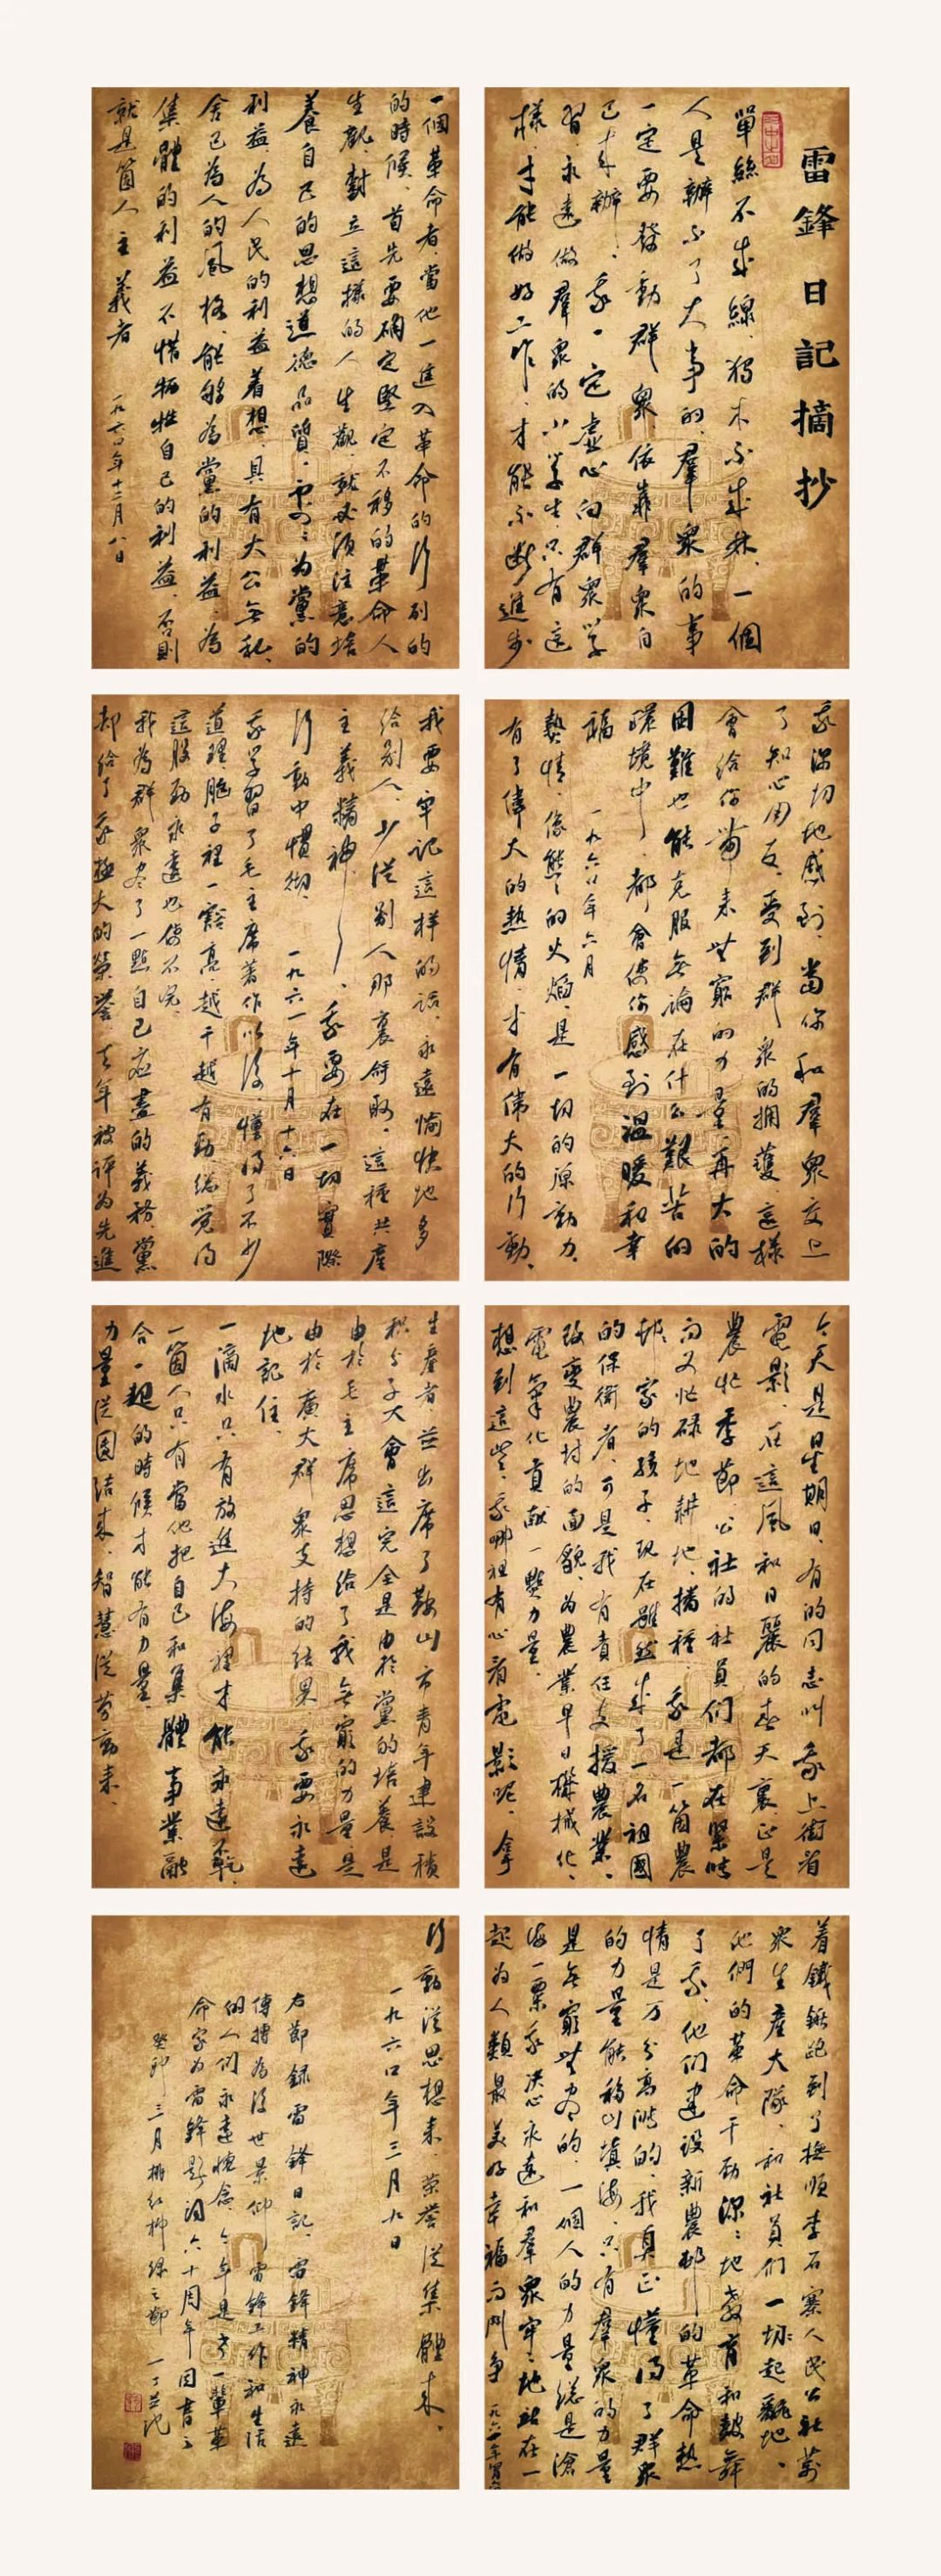 雷鋒日記摘抄
單絲不成線,獨木不成林,一個
人是辦不了大事的,群眾的事
一定要發動群眾依靠羣眾自
己來辦,我一定虛心向群眾學
習,永遠做羣眾的小學生,只有這
樣,才能做好工作,才能不斷進步
一個革命者,當他一進入革命的行列的
的時候,首先要确定堅定不移的革命人
生觀,樹立這樣的人生觀,就必須注意培
養自己的思想道德品質,處處為黨的
利益,為人民的利益着想,具有大公無私,
舍己為人的風格,能够為黨的利益,為
集體的利益不惜牺牲自己的利益,否則
就是箇人主義者
一九六〇年十二月八日
我深切地感到,當你和羣眾交上
了知心朋友,受到群眾的拥護,這樣
會給你帶来無窮的力量,再大的
困難也能克服無論在什么艱苦的
環境中,都會使你感到温暖和幸
福
一九六〇年六月
熱情,像熊熊的火焰,是一切的原動力,
有了偉大的熱情,才有偉大的行動,
我要牢記這样的話,永遠愉快地多
給别人,少從别人那裏拿取,這種共產
主義精神,我要在一切實際
行動中慣徹
一九六一年十月十六日
我学習了毛主席著作以後,懂得了不少
道理,腦子裡一豁亮,越干越有勁,総覚得
這股勁永遠也使不完,
我為群眾尽了一點自己应盡的義務,黨
却給了我極大的榮誉,去年被评為先進
今天是星期日,有的同志叫我上街看
電影,在這風和日麗的春天裏,正是
農忙季節,公社的社員们都在緊張
而又忙碌地耕地,播種,我是一箇農
邨家的孩子,現在雖然成了一名祖國
的保衛者,可是我有責任支援農業,
改變農村的面貌,为農業早日機械化,
電氣化貢献一點力量,
想到這些,我哪裡有心看電影呢,拿
生產者,並出席了鞍山市青年建設積
积分子大會這完全是由於黨的培養,是
由於毛主席思想給了我無窮的力量,是
由於廣大群眾支持的結果,我要永遠
地記住,
一滴水只有放進大海裡才能永遠不乾,
一箇人只有當他把自己和集體事業融
合一起的時候才能有力量,
力量從團結来,智慧從勞動来,
着鐵鍬跑到了撫順李石寨人民公社萬
眾生産大隊,和社員们一块起翻地,
他們的革命干勁深深地教育和鼓舞
了我,他们建設新農邨的革命熱
情是万分高涨的,我真正懂得了群眾
的力量能移山填海,只有羣眾的力量
是無窮無尽的,一個人的力量総是滄
海一粟,我决心永遠和羣眾牢牢地站在一
起,为人類最美好幸福而鬥争
行動從思想来,荣誉從集體来,
一九六〇年三月九日
右節録雷鋒日記,雷鋒精神永遠
傳揚為後世景仰,雷鋒工作和生活
的人们永遠懷念,今年是老一輩革
命家为雷鋒題詞六十周年因書之
癸卯三月桃红柳绿之節